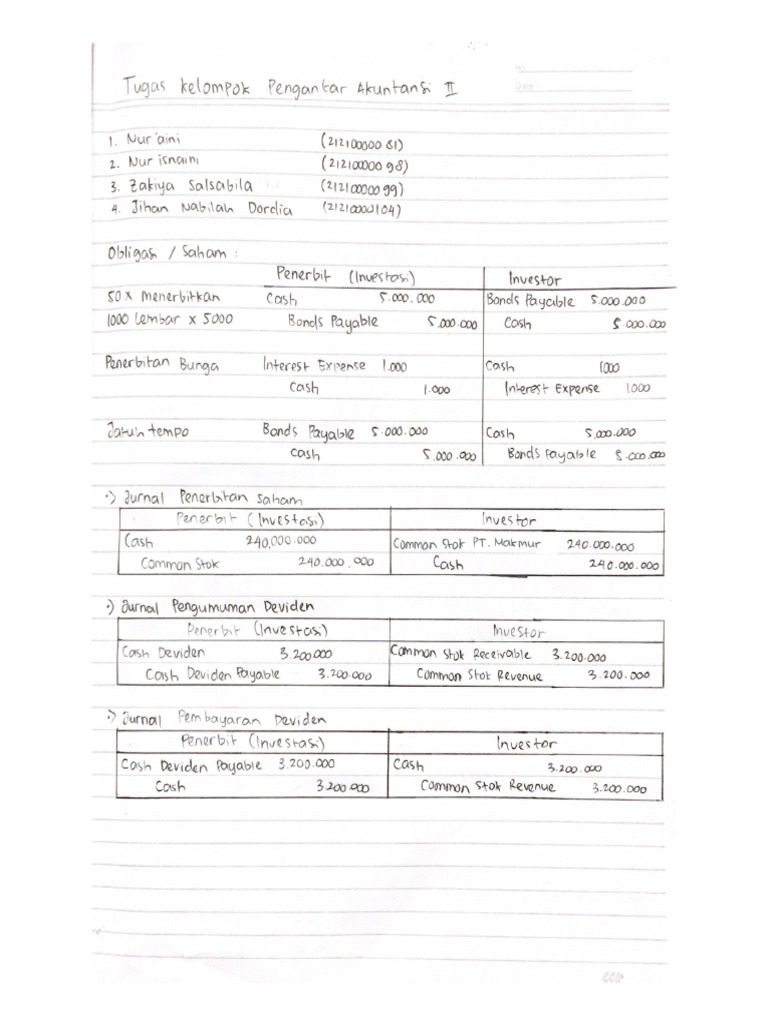 No
Date
Tugas Kelompok Pengantar Akuntansi II
1. Nur'aini (21210000081)
2. Nur isnaini (21210000098)
3. Zakiya Salsabila (21210000099)
4. Jihan Nabilah Dordia (21210000104)
Obligasi / Saham :
Penerbit (Investasi) Investor
50x Menerbitkan Cash 5.000.000 Bonds Payable 5.000.000
1000 Lembar x 5000 Bonds Payable 5.000.000 Cash 5.000.000
Penerbitan Bunga Interest Expense 1.000 Cash 1000
Cash 1.000 Interest Expense 1000
Jatuh tempo Bonds Payable 5.000.000 Cash 5.000.000
Cash 5.000.000 Bonds Payable 5.000.000
•) Jurnal Penerbitan Saham
Penerbit (Investasi) Investor
Cash 240.000.000 Common Stok PT. Makmur 240.000.000
Common Stok 240.000.000 Cash 240.000.000
•) Jurnal Pengumuman Deviden
Penerbit (Investasi) Investor
Cash Deviden 3.200.000 Common Stok Receivable 3.200.000
Cash Deviden Payable 3.200.000 Common Stok Revenue 3.200.000
•) Jurnal Pembayaran Deviden
Penerbit (Investasi) Investor
Cash Deviden Payable 3.200.000 Cash 3.200.000
Cash 3.200.000 Common Stok Revenue 3.200.000